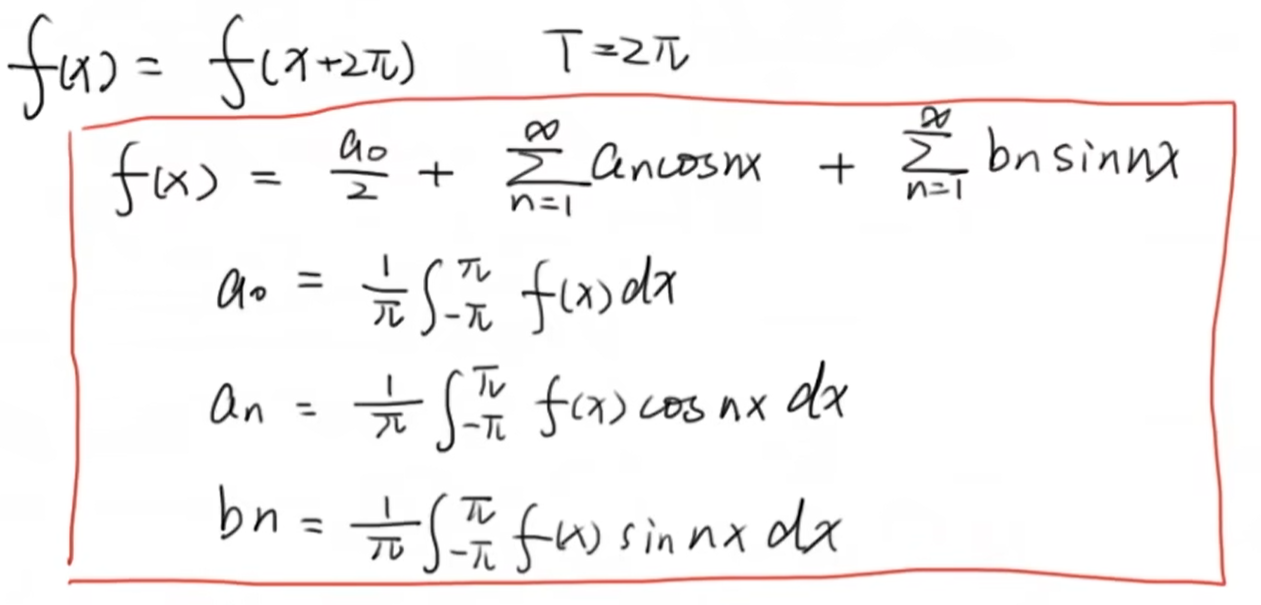 f(x) = f(x+2π) T=2π
f(x) = a₀/2 + ∑_{n=1}^{∞} aₙcosnx + ∑_{n=1}^{∞} bₙsinnx
a₀ = 1/π ∫_{-π}^{π} f(x)dx
aₙ = 1/π ∫_{-π}^{π} f(x) cos nx dx
bₙ = 1/π ∫_{-π}^{π} f(x) sin nx dx